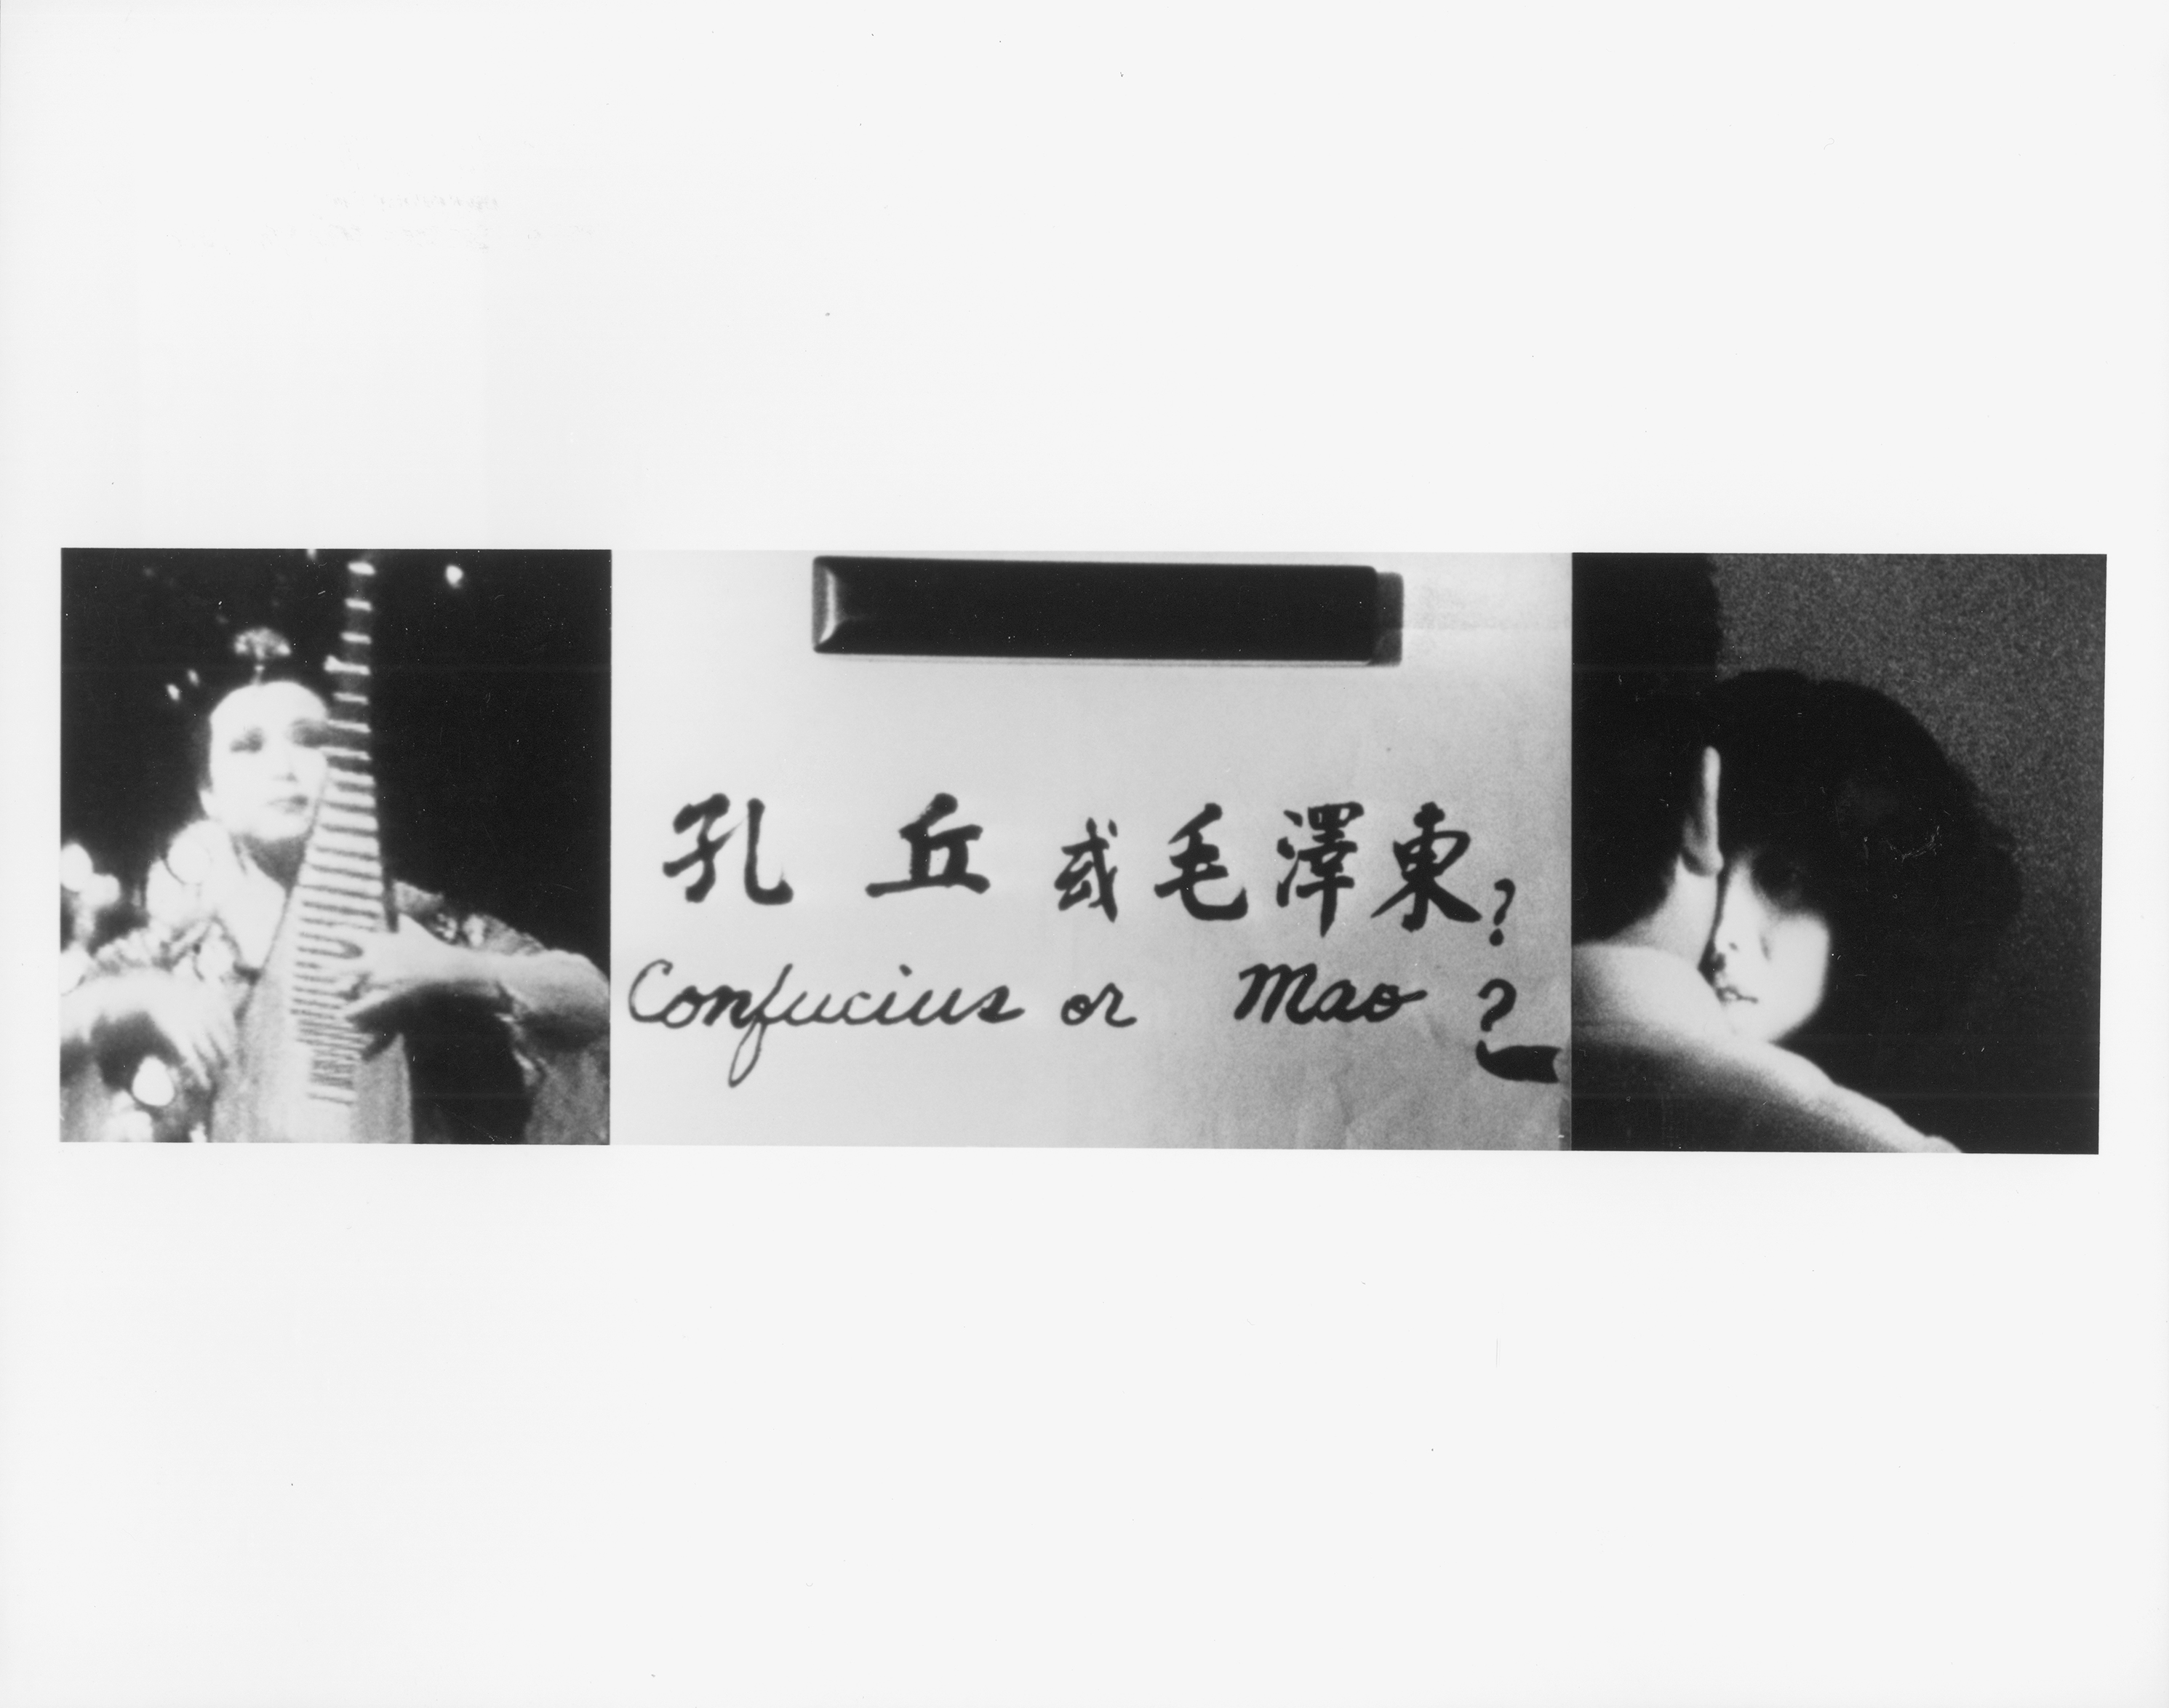 孔丘或毛澤東?
Confucius or Mao ?